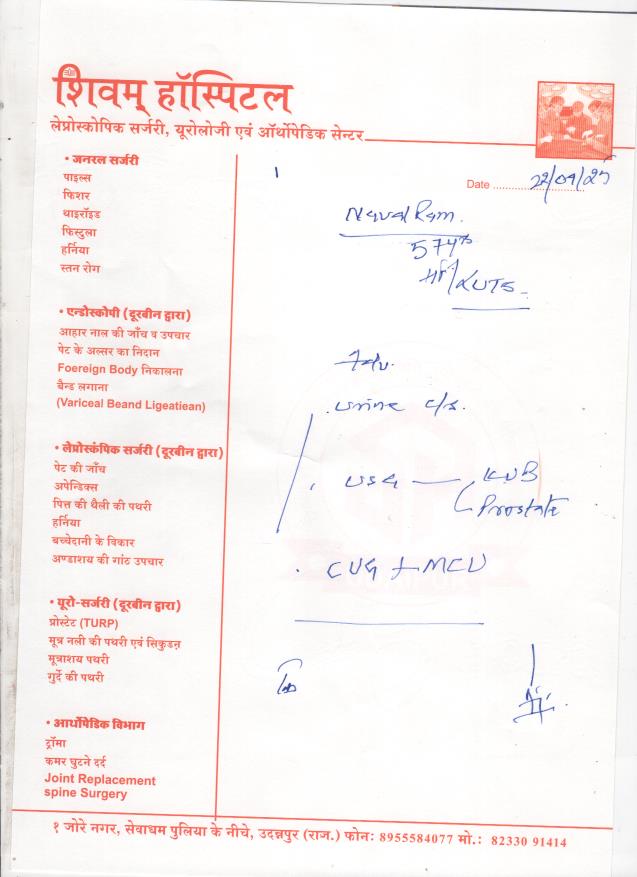 शिवम् हॉस्पिटल
लेप्रोस्कोपिक सर्जरी, यूरोलोजी एवं ऑर्थोपेडिक सेन्टर
• जनरल सर्जरी
पाइल्स
फिशर
थाइरॉइड
फिस्टुला
हर्निया
स्तन रोग
• एन्डोस्कोपी (दूरबीन द्वारा)
आहार नाल की जाँच व उपचार
पेट के अल्सर का निदान
Foereign Body निकालना
बैन्ड लगाना
(Variceal Beand Ligeatiean)
• लेप्रोस्कंपिक सर्जरी (दूरबीन द्वारा)
पेट की जाँच
अपेन्डिक्स
पित्त की थैली की पथरी
हर्निया
बच्चेदानी के विकार
अण्डाशय की गांठ उपचार
• यूरो-सर्जरी (दूरबीन द्वारा)
प्रोस्टेट (TURP)
मूत्र नली की पथरी एवं सिकुडऩ
मूत्राशय पथरी
गुर्दे की पथरी
• आर्थोपेडिक विभाग
ट्रॉमा
कमर घुटने दर्द
Joint Replacement
spine Surgery
Date 22/04/25
Naval Ram.
LUTS
Adv.
urine c/s.
USG — KUB
Prostate
CUG + MCU
१ जोरे नगर, सेवाधम पुलिया के नीचे, उदन्नपुर (राज.) फोनः 8955584077 मो.: 82330 91414